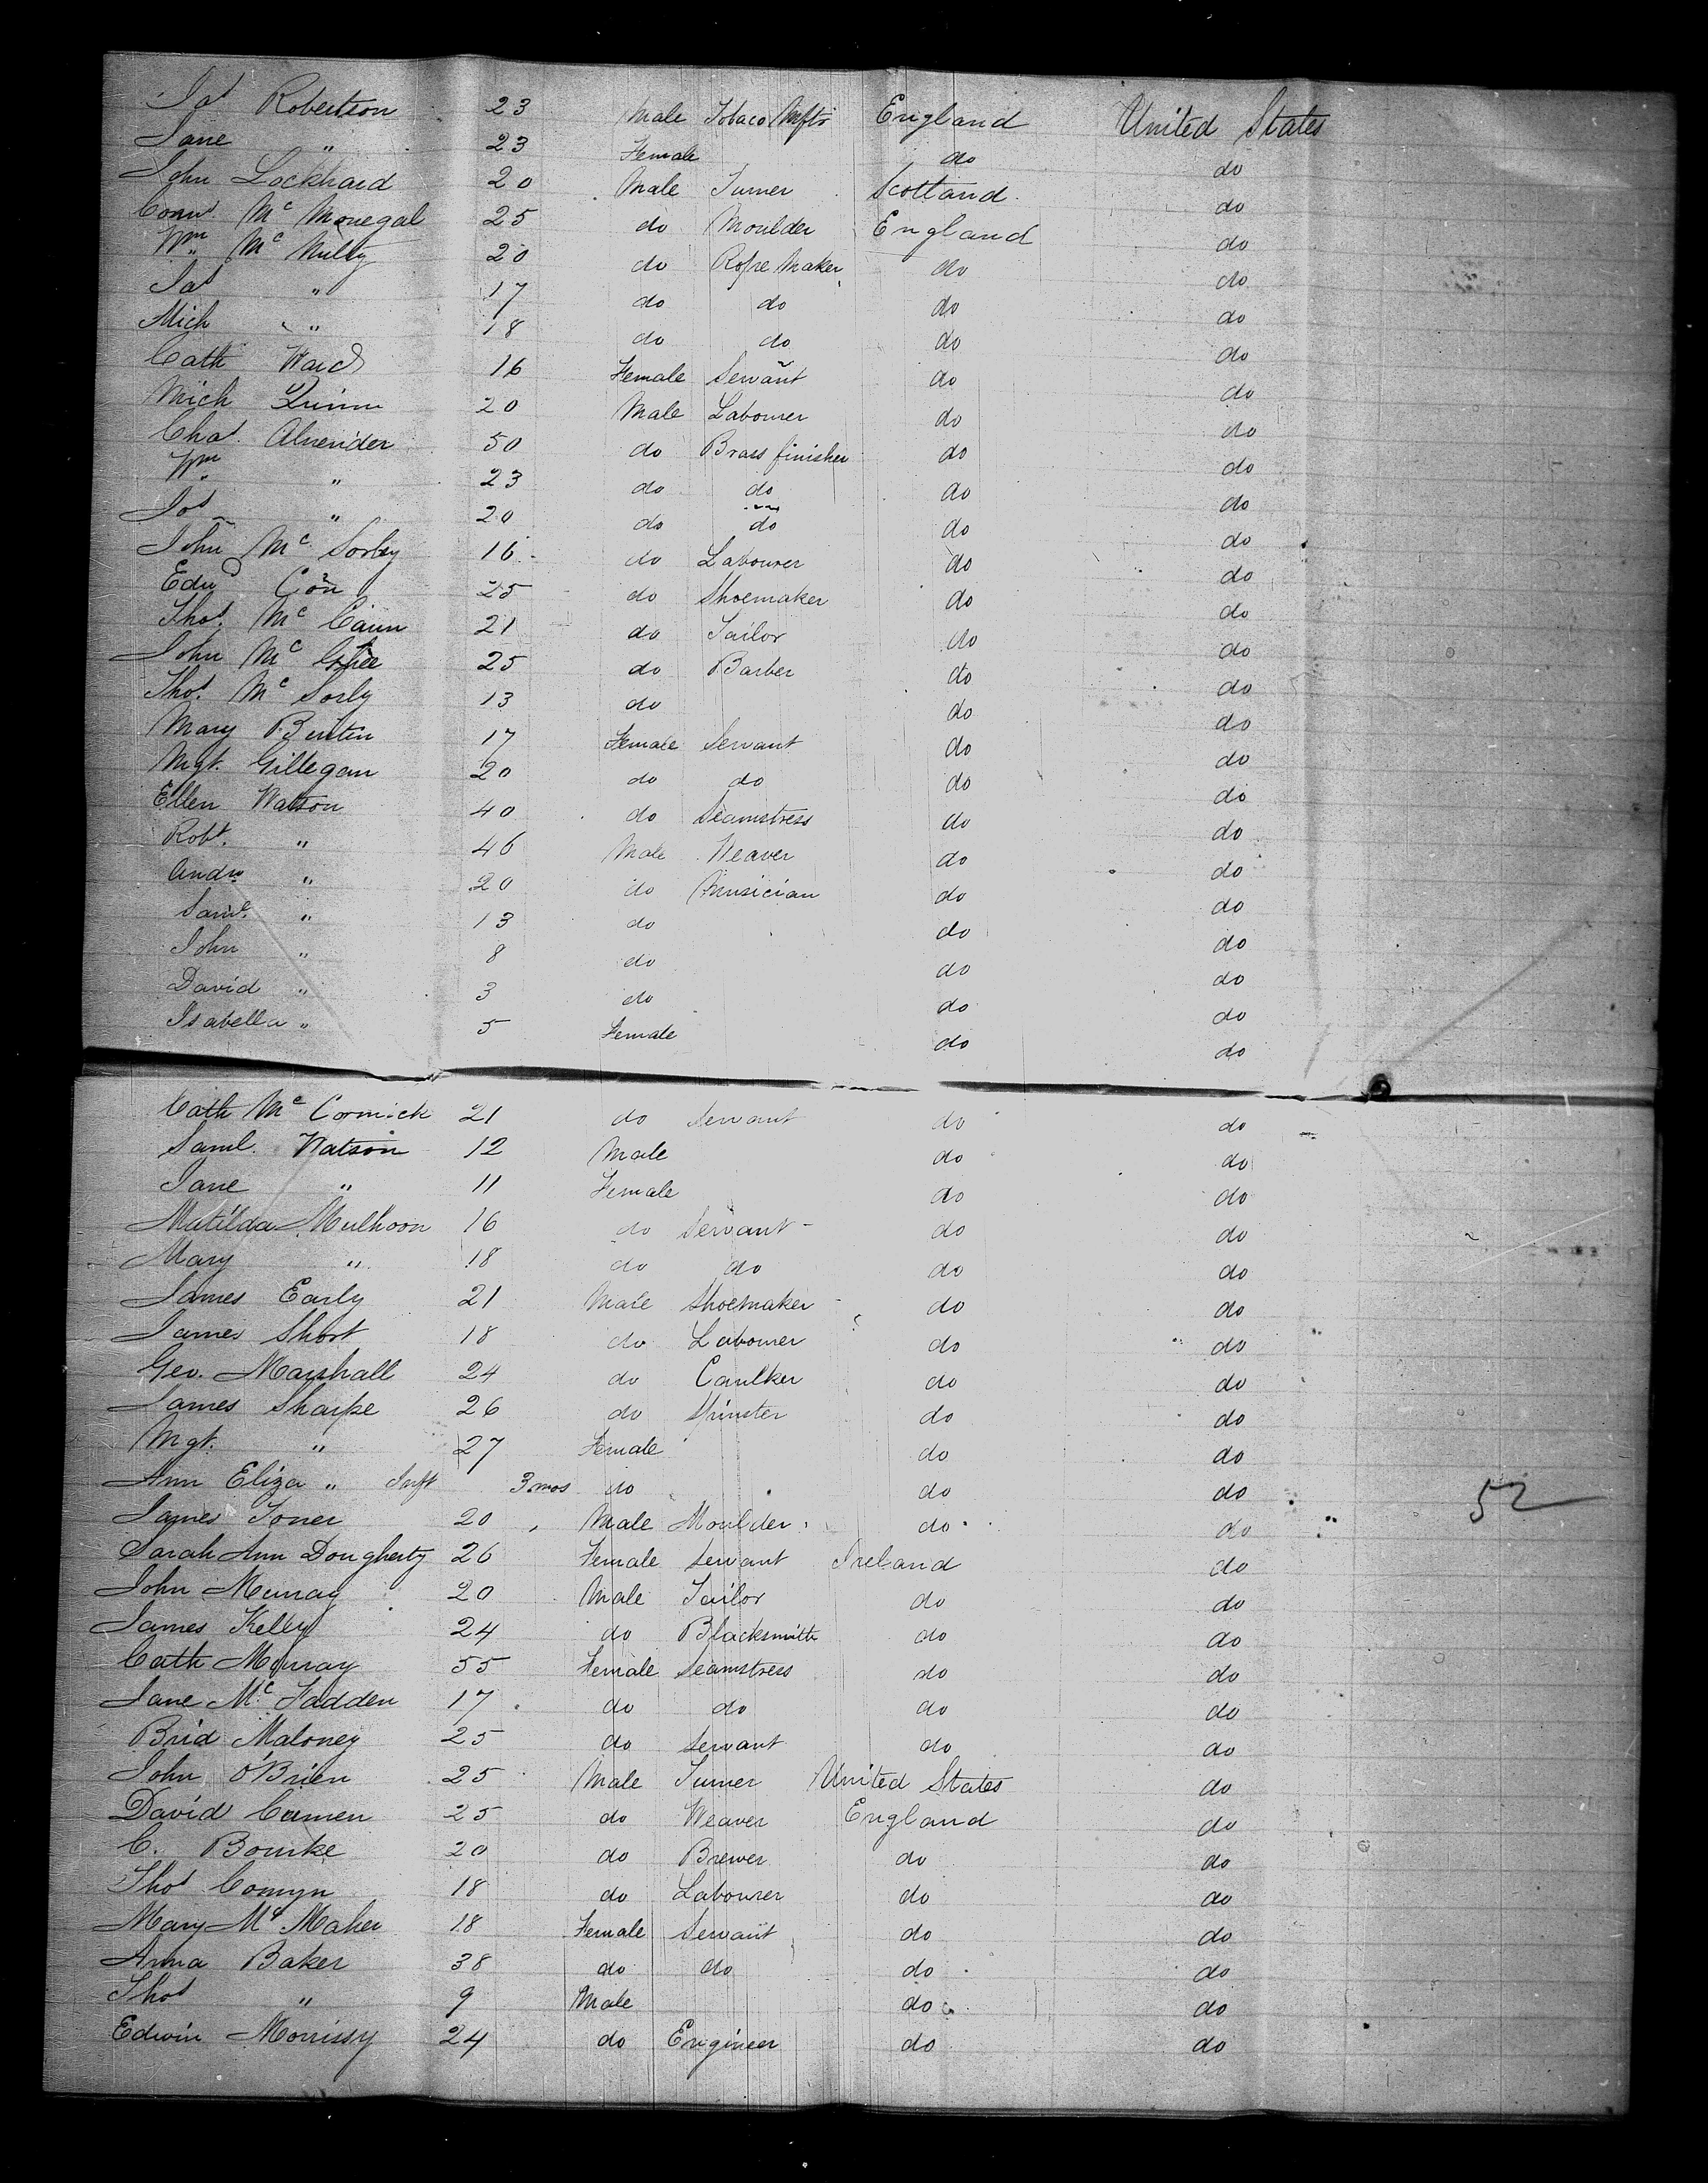 Jas Robertson 23 Male Tobaco Mftr England United States
Jane " 23 Female do do
John Lockhard 20 Male Turner Scotland do
Conn. Mc Monegal 25 do Moulder England do
Wm Mc Nulty 20 do Rope Maker do do
Jas " 17 do do do do
Mich " 18 do do do do
Cath Ward 16 Female Servant do do
Mich Quinn 20 Male Labourer do do
Chas. Alvender 50 do Brass finisher do do
Wm " 23 do do do do
Jos " 20 do do do do
John Mc Sorley 16 do Labourer do do
Edwd 25 do Shoemaker do do
Thos. Mc Cann 21 do Tailor do do
John Mc 25 do Barber do do
Thos. Mc Sorly 13 do do do
Mary 17 Female Servant do do
Mgt. Gillegan 20 do do do do
Ellen Watson 40 do Seamstress do do
Robt. " 46 Male Weaver do do
Andw " 20 do Musician do do
Saml. " 13 do do do
John " 8 do do do
David " 3 do do do
Isabella " 5 Female do do
Cath Mc Cormick 21 do Servant do do
Saml. Watson 12 Male do do
Jane " 11 Female do do
Matilda Mulhoon 16 do Servant do do
Mary " 18 do do do do
James Early 21 Male Shoemaker do do
James Short 18 do Labourer do do
Geo. Marshall 24 do Caulker do do
James Sharpe 26 do Spinster do do
Mgt. " 27 Female do do
Ann Eliza " Inft 3 mos do do do
52
James Toner 20 Male Moulder do do
Sarah Ann Dougherty 26 Female Servant Ireland do
John Murray 20 Male Tailor do do
James Kelly 24 do Blacksmith do do
Cath Murray 55 Female Seamstress do do
Jane Mc Fadden 17 do do do do
Brid Maloney 25 do Servant do do
John O'Brien 25 Male Turner United States do
David 25 do Weaver England do
C. Bourke 20 do Brewer do do
Thos Comyn 18 do Labourer do do
Mary Maher 18 Female Servant do do
Anna Baker 38 do do do do
Thos " 9 Male do do
Edwin Morrissy 24 do Engineer do do